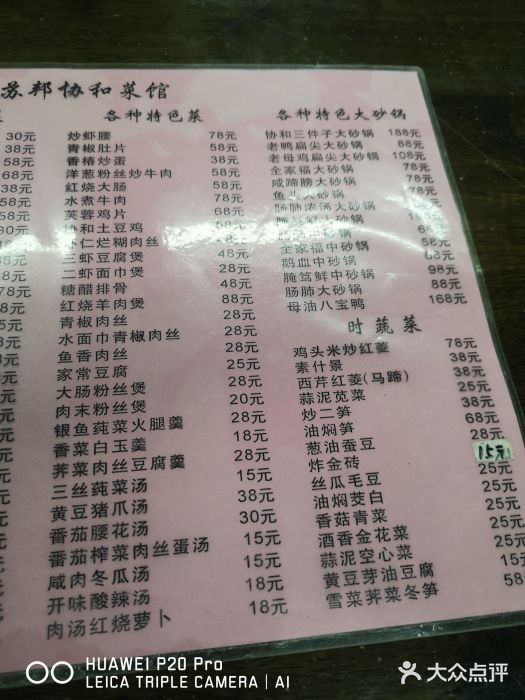 苏邦协和菜馆
各种特色菜
炒虾腰 78元
青椒肚片 58元
香椿炒蛋 38元
洋葱粉丝炒牛肉 58元
红烧大肠 58元
水煮牛肉 78元
芙蓉鸡片 68元
协和土豆鸡 58
虾仁烂糊肉丝
三虾豆腐煲 48元
二虾面巾煲 28元
糖醋排骨 48元
红烧羊肉煲 88元
青椒肉丝 28元
水面巾青椒肉丝 28元
鱼香肉丝 28元
家常豆腐 25元
大肠粉丝煲 28元
肉末粉丝煲 20元
银鱼莼菜火腿羹 28元
香菜白玉羹 18元
荠菜肉丝豆腐羹 28元
三丝莼菜汤 15元
黄豆猪爪汤 38元
番茄腰花汤 30元
番茄榨菜肉丝蛋汤 15元
咸肉冬瓜汤 15元
开味酸辣汤 18元
肉汤红烧萝卜 18元
各种特色大砂锅
协和三件子大砂锅 188元
老鸭扁尖大砂锅 88元
老母鸡扁尖大砂锅 108元
全家福大砂锅
咸蹄膀大砂锅
鱼头大砂锅
肠肺浓汤大砂锅
腌笃鲜大砂锅
全家福中砂锅
鹅血中砂锅
腌笃鲜中砂锅 98元
肠肺大砂锅 88元
母油八宝鸭 168元
时蔬菜
鸡头米炒红菱 78元
素什景 38元
西芹红菱(马蹄) 38元
蒜泥苋菜 25元
炒二笋 38元
油焖笋 68元
葱油蚕豆 28元
炸金砖 15元
丝瓜毛豆 25元
油焖茭白 25元
香菇青菜 25元
酒香金花菜 25元
蒜泥空心菜 25元
黄豆芽油豆腐 25元
雪菜荠菜冬笋 58元
HUAWEI P20 Pro
LEICA TRIPLE CAMERA | AI
大众点评